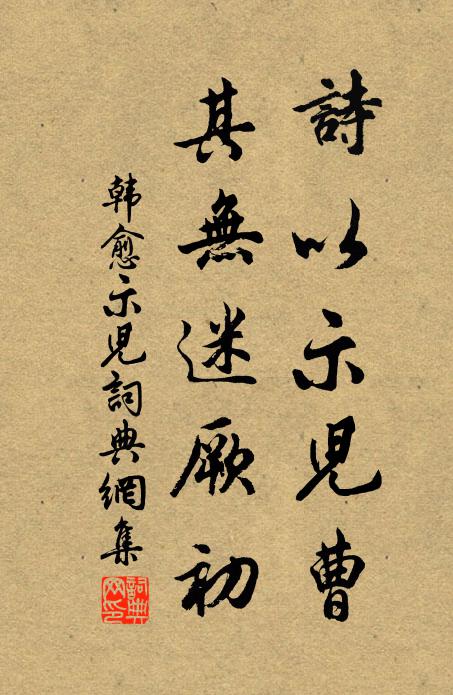 詩以示兒曹
其無迷厥初
韩愈示兒詞典網集
詞典网印